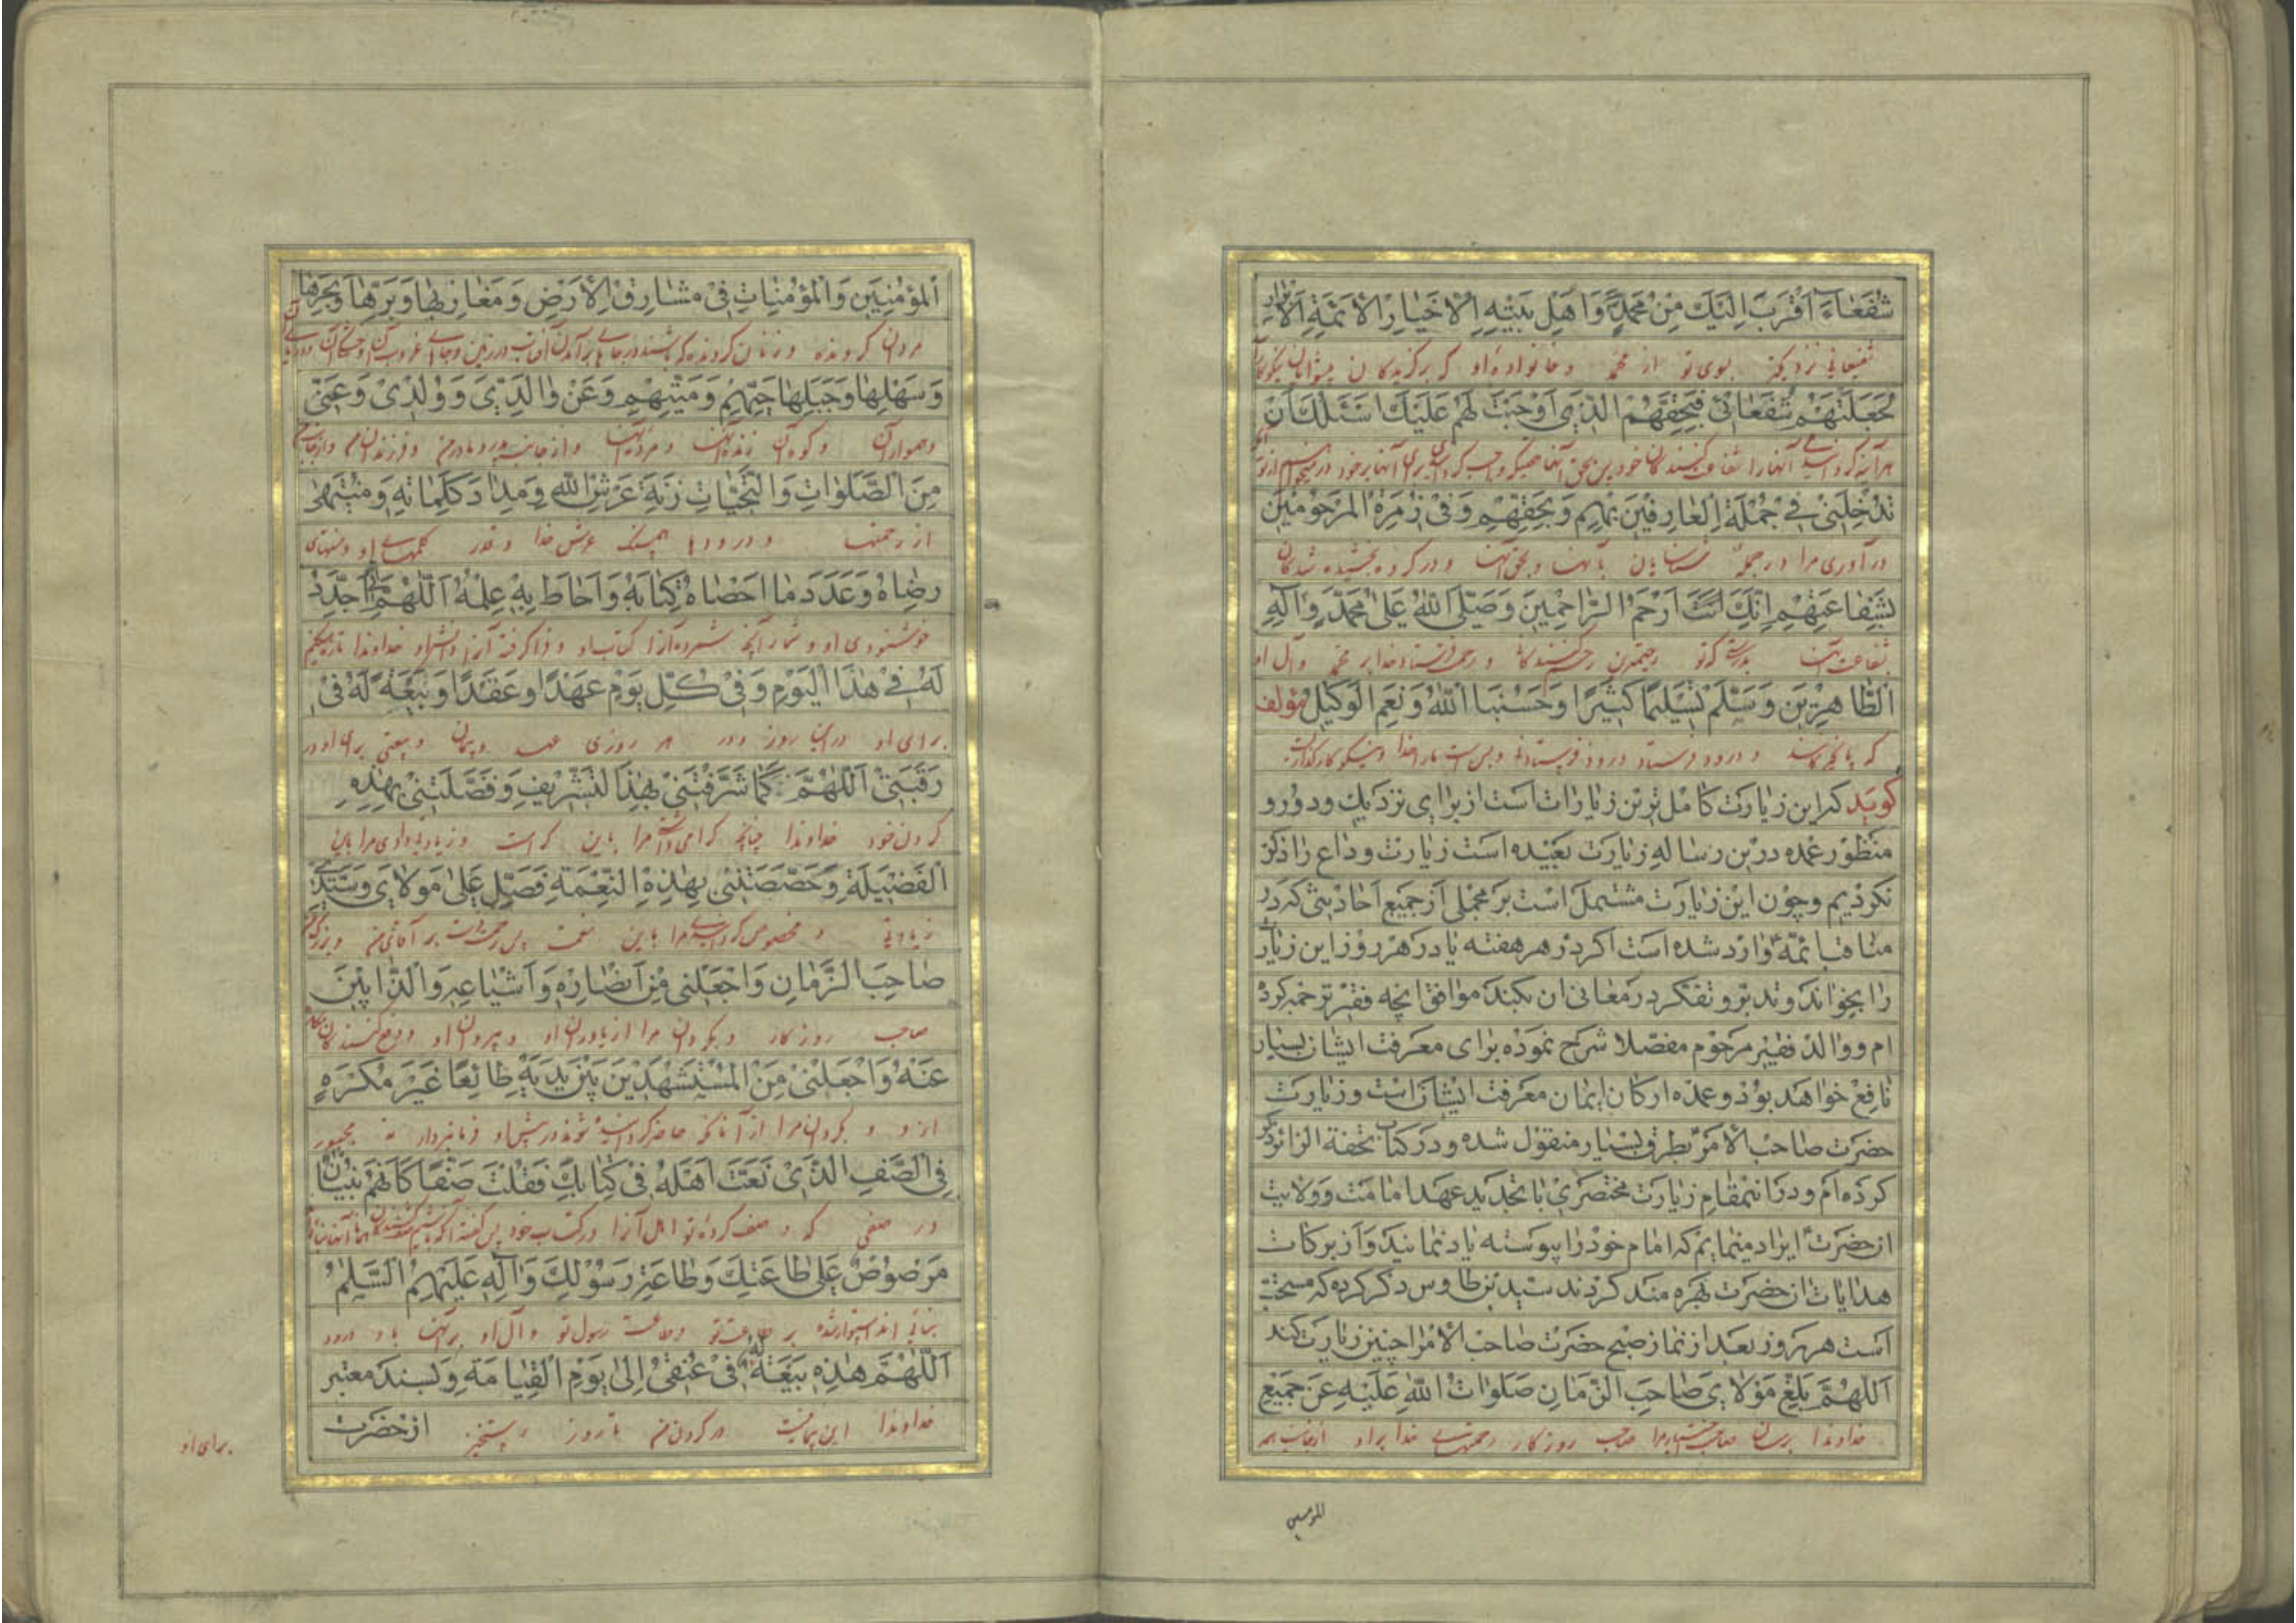 شُفَعٰاءَ اَقْرَبَ اِلَيْكَ مِنْ مُحَمَّدٍ وَاَهْلِ بَيْتِهِ الْاَخْيٰارِ الْاَئِمَّةِ الْاَبْرٰارِ
شفیعانی نزدیکتر بسوی تو از محمّد و خانواده او که برگزیدگان پیشوایان نیکوکاران
لَجَعَلْتَهُمْ شُفَعٰائي فَبِحَقِّهِمُ الَّذي اَوْجَبْتَ لَهُمْ عَلَيْكَ اَسْئَلُكَ اَنْ
هرآینه گردانیدمی آنها را شفاعت کنندگان خود پس بحق آنها که واجب گردانیدی برای آنها بر خود میخواهم از تو
تُدْخِلَني في جُمْلَةِ الْعٰارِفينَ بِهِمْ وَبِحَقِّهِمْ وَفي زُمْرَةِ الْمَرْحُومينَ
درآوری مرا در جمله شناسایان بآنها و بحق آنها و در گروه بخشیده شدگان
بِشَفٰاعَتِهِمْ اِنَّكَ اَنْتَ اَرْحَمُ الرّٰاحِمينَ وَصَلَّى اللّٰهُ عَلىٰ مُحَمَّدٍ وَاٰلِهِ
بشفاعت آنها بدرستی که تو رحیمترین رحم کنندگانی و رحمت فرستاد خدا بر محمّد و آل او
الطّٰاهِرينَ وَسَلَّمَ تَسْليمًا كَثيرًا وَحَسْبُنَا اللّٰهُ وَنِعْمَ الْوَكيلُ مؤلف
که پاکیزگانند و درود فرستاد درود فرستادنی و بس است ما را خدا و نیکو کارگذاریست
کوید که این زیارت کامل ترین زیارات است از برای نزدیك و دور و
منظور عمده درین رساله زیارت بعیده است زیارت وداع را ذکر
نکردیم و چون این زیارت مشتمل است بر مجملی از جمیع احادیثی که در
مناقب ائمّه وارد شده است اکر در هر هفته یا در هر روز این زیارت
را بخواند و تدبّر و تفکر در معانی ان بکند موافق انچه فقیر ترجمه کرده
ام و والد فقیر مرحوم مفصّلا شرح نموده برای معرفت ایشان بسیار
نافع خواهد بود و عمده ارکان ایمان معرفت ایشان است و زیارت
حضرت صاحب الامر بطرق بسیار منقول شده و در کتاب تحفة الزائر ذکر
کرده ام و در اینمقام زیارت مختصری با تجدید عهد امامت و ولایت
انحضرت ایراد مینمایم که امام خود را پیوسته یاد نمایند و از برکات
هدایات انحضرت بهره مند کردند سید بن طاوس ذکر کرده که مستحب
است هر روز بعد از نماز صبح حضرت صاحب الامر را چنین زیارت کند
اَللّٰهُمَّ بَلِّغْ مَوْلٰايَ صٰاحِبَ الزَّمٰانِ صَلَوٰاتُ اللّٰهِ عَلَيْهِ عَنْ جَميعِ
خداوندا برسان صاحب اختیار مرا صاحب روزگار رحمتهای خدا بر او از جانب همه
المؤمنین
الْمُؤْمِنينَ وَالْمُؤْمِنٰاتِ في مَشٰارِقِ الْاَرْضِ وَمَغٰارِبِهٰا وَبَرِّهٰا وَبَحْرِهٰا
مردان گرونده و زنان گرونده که باشند در جاهای برآمدن آفتاب در زمین و جاهای غروب آن و خشکی آن و دریای آن
وَسَهْلِهٰا وَجَبَلِهٰا حَيِّهِمْ وَمَيِّتِهِمْ وَعَنْ وٰالِدَيَّ وَوُلْدي وَعَنّي
و هموار آن و کوه آن زنده آنها و مرده آنها و از جانب پدر و مادرم و فرزندان من و از جانب من
مِنَ الصَّلَوٰاتِ وَالتَّحِيّٰاتِ زِنَةَ عَرْشِ اللّٰهِ وَمِدٰادَ كَلِمٰاتِهِ وَمُنْتَهىٰ
از رحمتها و درودها همسنگ عرش خدا و قدر کلمهای او و منتهای
رِضٰاهُ وَعَدَدَ مٰا اَحْصٰاهُ كِتٰابُهُ وَاَحٰاطَ بِهِ عِلْمُهُ اَللّٰهُمَّ اِنّي اُجَدِّدُ
خوشنودی او و شمار آنچه شمرده آنرا کتاب او و فراگرفته آنرا دانش او خداوندا تازه میکنم
لَهُ في هٰذَا الْيَوْمِ وَفي كُلِّ يَوْمٍ عَهْدًا وَعَقْدًا وَبَيْعَةً لَهُ في
برای او در این روز و در هر روزی عهد و پیمان و بیعتی برای او در
رَقَبَتي اَللّٰهُمَّ كَمٰا شَرَّفْتَني بِهٰذَا التَّشْريفِ وَفَضَّلْتَني بِهٰذِهِ
گردن خود خداوندا چنانچه گرامی داشتی مرا باین کرامت و زیادتی دادی مرا باین
الْفَضيلَةِ وَخَصَصْتَني بِهٰذِهِ النِّعْمَةِ فَصَلِّ عَلىٰ مَوْلٰايَ وَسَيِّدي
زیادتی و مخصوص گردانیدی مرا باین نعمت پس رحمت فرست بر آقای من و بزرگ من
صٰاحِبِ الزَّمٰانِ وَاجْعَلْني مِنْ اَنْصٰارِهِ وَاَشْيٰاعِهِ وَالذّٰابّينَ
صاحب روزگار و بگردان مرا از یاوران او و پیروان او و دفع کنندگان
عَنْهُ وَاجْعَلْني مِنَ الْمُسْتَشْهَدينَ بَيْنَ يَدَيْهِ طٰائِعًا غَيْرَ مُكْرَهٍ
از او و بگردان مرا از آنانکه حاضر گردانیده شوند در پیش او فرمانبردار نه مجبور
فِي الصَّفِّ الَّذي نَعَتَّ اَهْلَهُ في كِتٰابِكَ فَقُلْتَ صَفًّا كَاَنَّهُمْ بُنْيٰانٌ
در صفی که وصف کرده تو اهل آنرا در کتاب خود پس گفته
مَرْصُوصٌ عَلىٰ طٰاعَتِكَ وَطٰاعَةِ رَسُولِكَ وَاٰلِهِ عَلَيْهِمُ السَّلٰمُ
بنائی اند استوار شده بر طاعت تو و طاعت رسول تو و آل او بر آنها باد درود
اَللّٰهُمَّ هٰذِهِ بَيْعَةٌ لَهُ في عُنُقي اِلىٰ يَوْمِ الْقِيٰامَةِ وبسند معتبر
خداوندا این بیعتیست در گردن من تا روز رستخیز ازحضرت
برای او